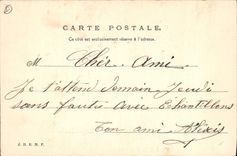 CARTE POSTALE.
Ce côté est exclusivement réservé à l'adresse.
M Cher Ami
Je t'attend demain Jeudi
sans faute avec Echantillons
Ton ami Alexis